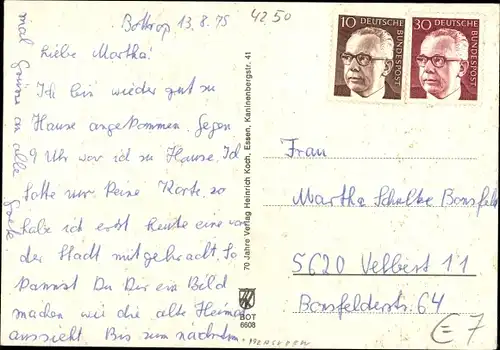 Bottrop 13.8.75
4250
Liebe Martha!
Ich bin wieder gut zu
Hause angekommen. Gegen
9 Uhr war ich zu Hause. Ich
hatte nur keine Karte, so
habe ich erst heute eine von
der Stadt mitgebracht. So
kannst Du Dir ein Bild
machen wie die alte Heimat
aussieht. Bis zum nächsten
mal Grüsse an alle Grete
70 Jahre Verlag Heinrich Koch, Essen, Kaninenbergstr. 41
BOT
6608
10 DEUTSCHE BUNDESPOST
30 DEUTSCHE BUNDESPOST
Frau
Martha Schulte Bonsfeld
5620 Velbert 11
Bonsfelderstr. 64
E 7